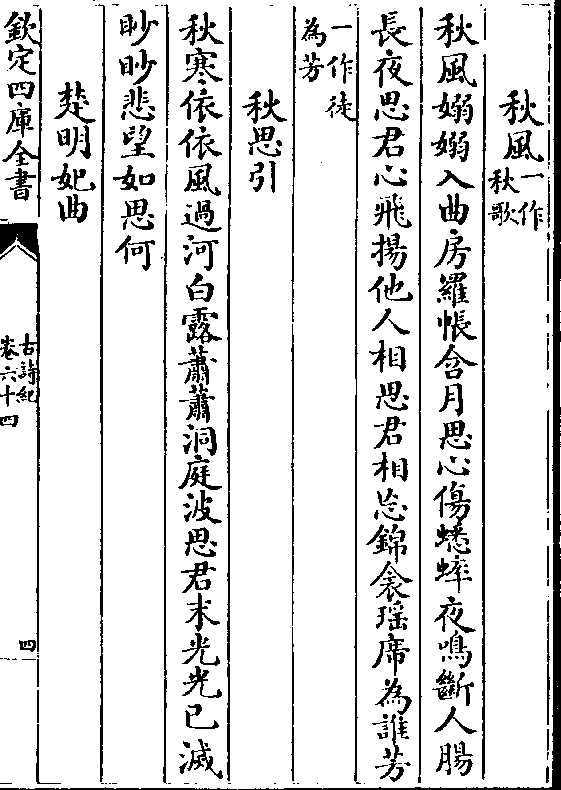 秋風一作秋歌
秋風嫋嫋入曲房羅帳含月思心傷蟋蟀夜鳴斷人腸
長夜思君心飛揚他人相思君相忘錦衾瑶席為誰芳
一作徒為芳
秋思引
秋寒依依風過河白露蕭蕭洞庭波思君末光光已滅
眇眇悲望如思何
楚明妃曲
欽定四庫全書
古詩紀
卷六十四
四